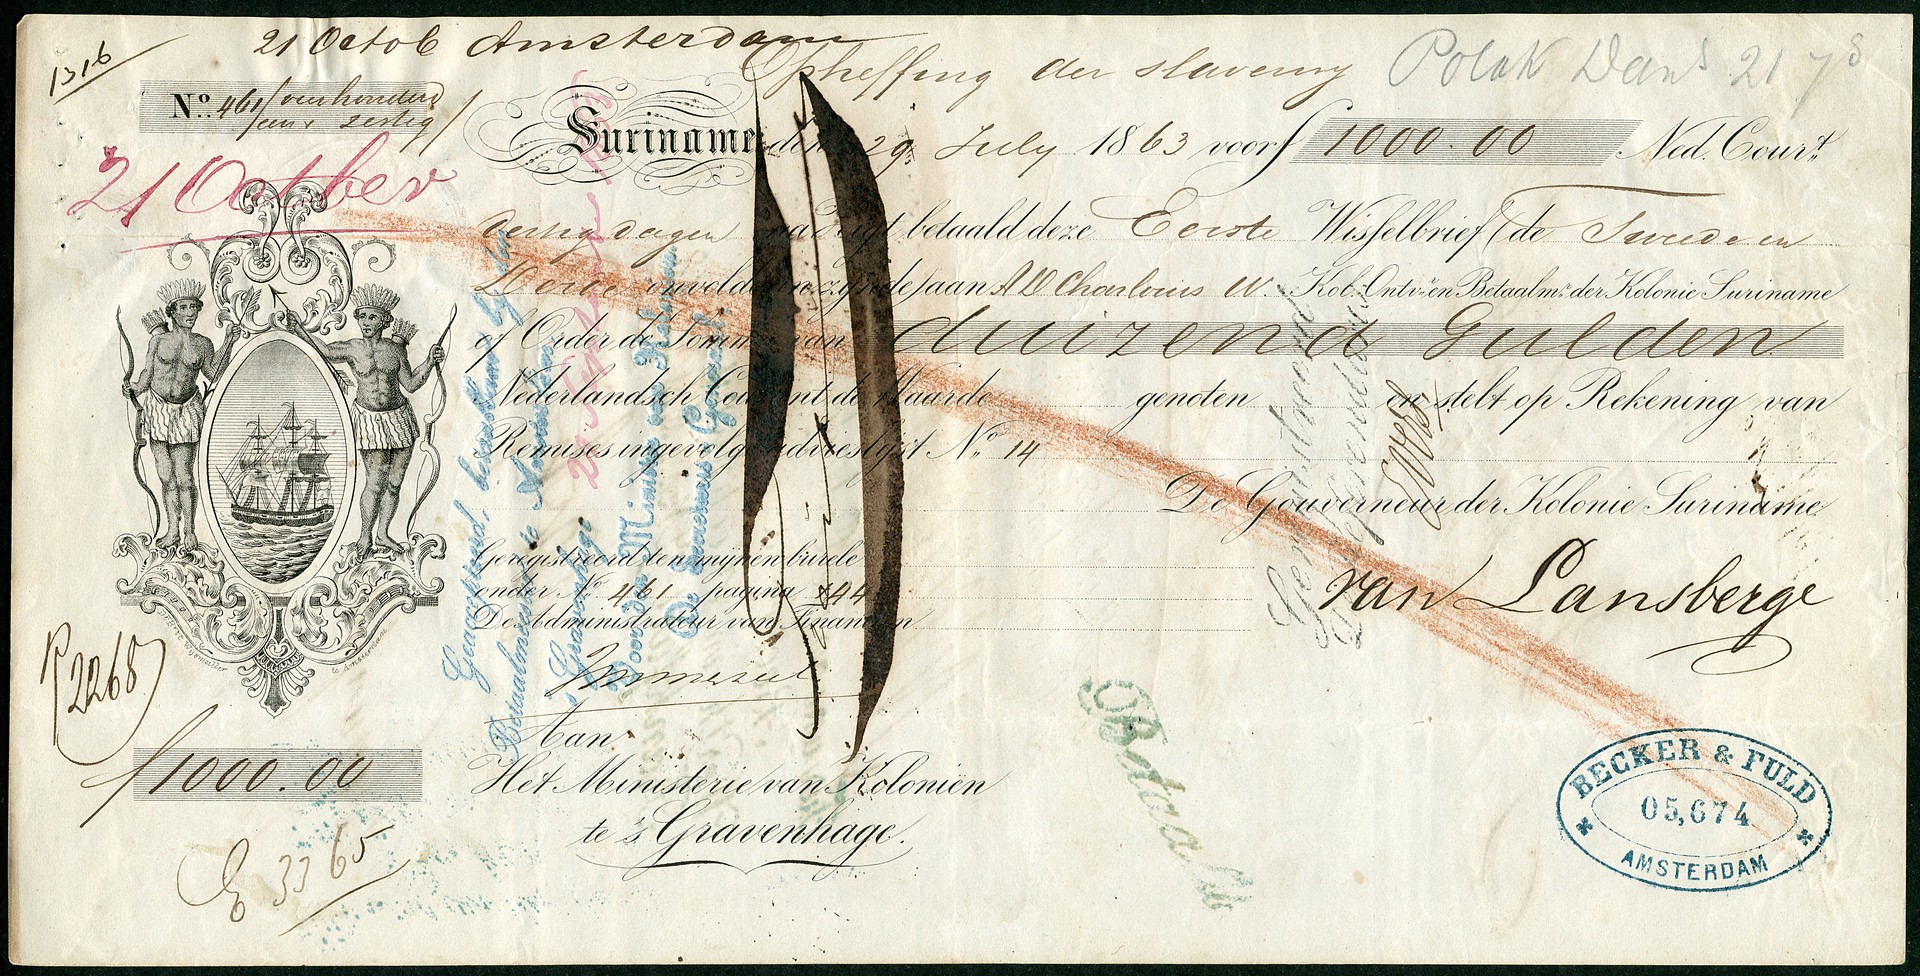 1316
21 Octob Amsterdam
Opheffing der slaverny
Polak Dan^s 21 7
N^o. 461/vierhonderd
een & zestig/
Suriname den 29 July 1863 voor f 1000.00 Ned. Cour^t
21 October
dertig dagen na zigt betaald deze Eerste Wisselbrief (de Tweede en
Derde onvoldaan zijnde) aan Kol. Ontv^r en Betaalm^r der Kolonie Suriname
of Order de Somme van duizend Gulden
Nederlandsch Courant de Waarde genoten en stelt op Rekening van
Remises ingevolge advieslijst N^o 14
De Gouverneur der Kolonie Suriname
van Lansberge
Geregistreerd ten mijnen burele
onder N^o 461 pagina 144
De Administrateur van Financiën
Aan
Het Ministerie van Koloniën
te 's Gravenhage.
2268
f 1000.00
E 3365
Geaccepteerd, betaalbaar bij den
Betaalmeester te Amsterdam
's Gravenhage
Voor den Minister van Kolonien
De Secretaris Generaal
Betaald
BECKER & FULD
05,674
AMSTERDAM